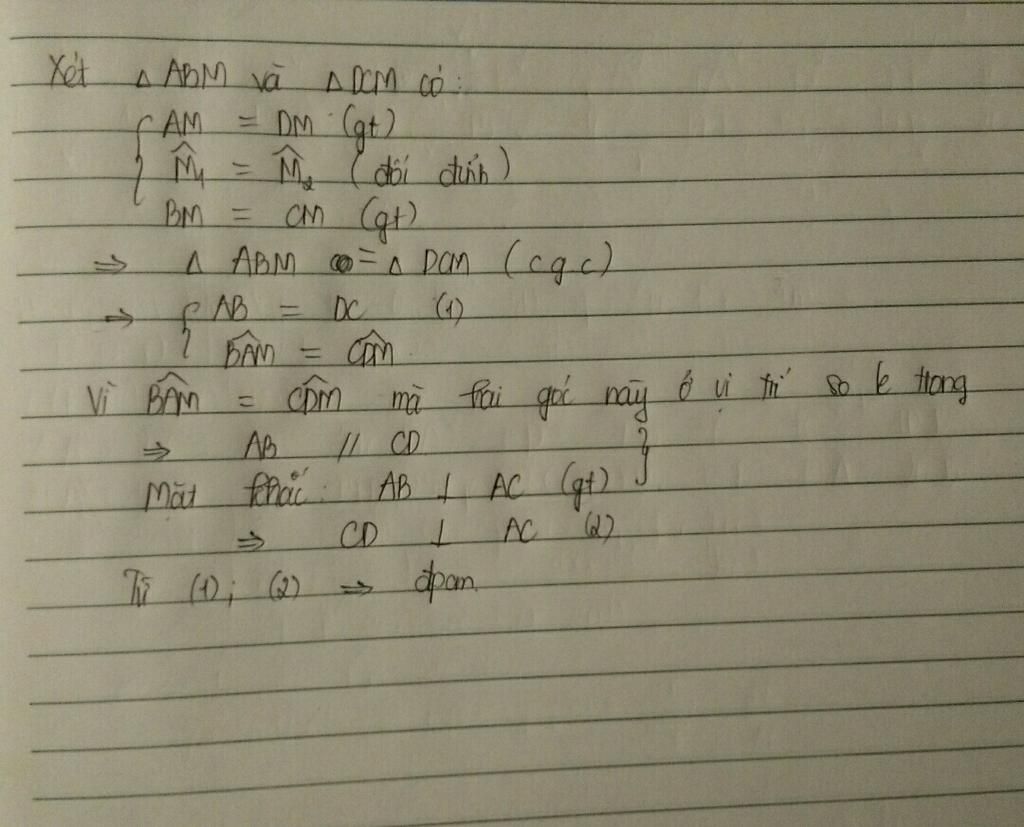 Xét △ ABM và △ DCM có:
AM = DM (gt)
M̂₁ = M̂₂ (đối đỉnh)
BM = CM (gt)
⇒ △ ABM = △ DCM (c g c)
⇒ { AB = DC (1)
BÂM = CD̂M
Vì BÂM = CD̂M mà hai góc này ở vị trí so le trong
⇒ AB // CD
Mặt khác: AB ⊥ AC (gt)
⇒ CD ⊥ AC (2)
Từ (1); (2) ⇒ đpcm